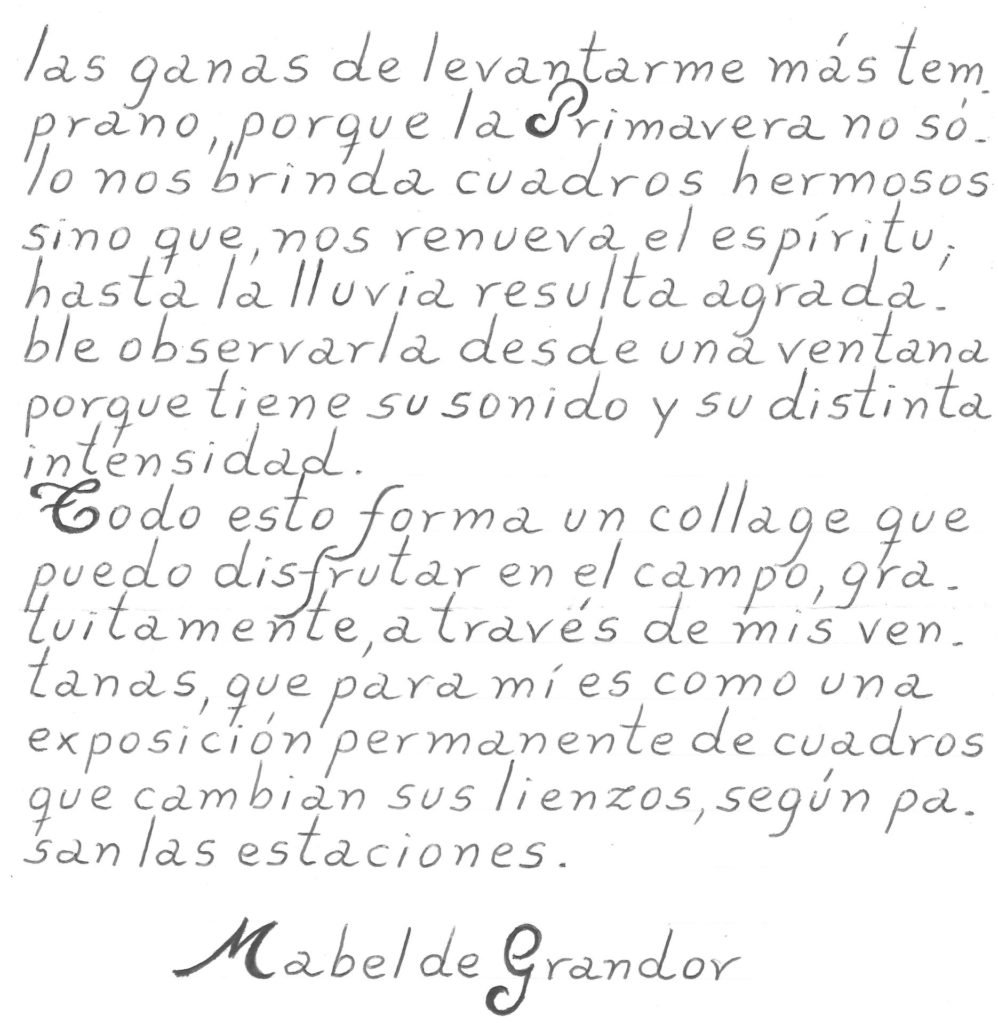 las ganas de levantarme más tem-
prano, porque la Primavera no só-
lo nos brinda cuadros hermosos
sino que, nos renueva el espíritu;
hasta la lluvia resulta agrada-
ble observarla desde una ventana
porque tiene su sonido y su distinta
intensidad.
Todo esto forma un collage que
puedo disfrutar en el campo, gra-
tuitamente, a través de mis ven-
tanas, que para mí es como una
exposición permanente de cuadros
que cambian sus lienzos, según pa-
san las estaciones.
Mabel de Grandor